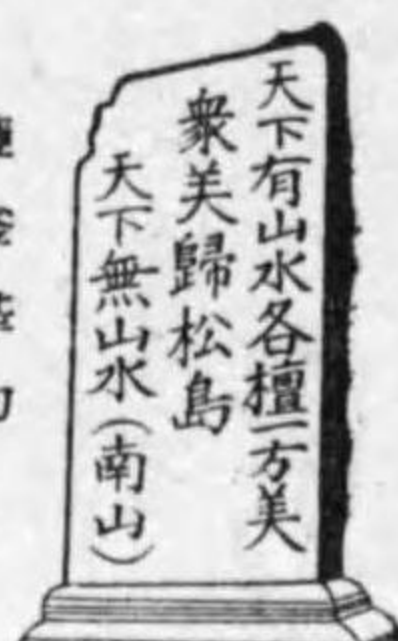 天下有山水各檀一方美
衆美歸松島
天下無山水(南山)